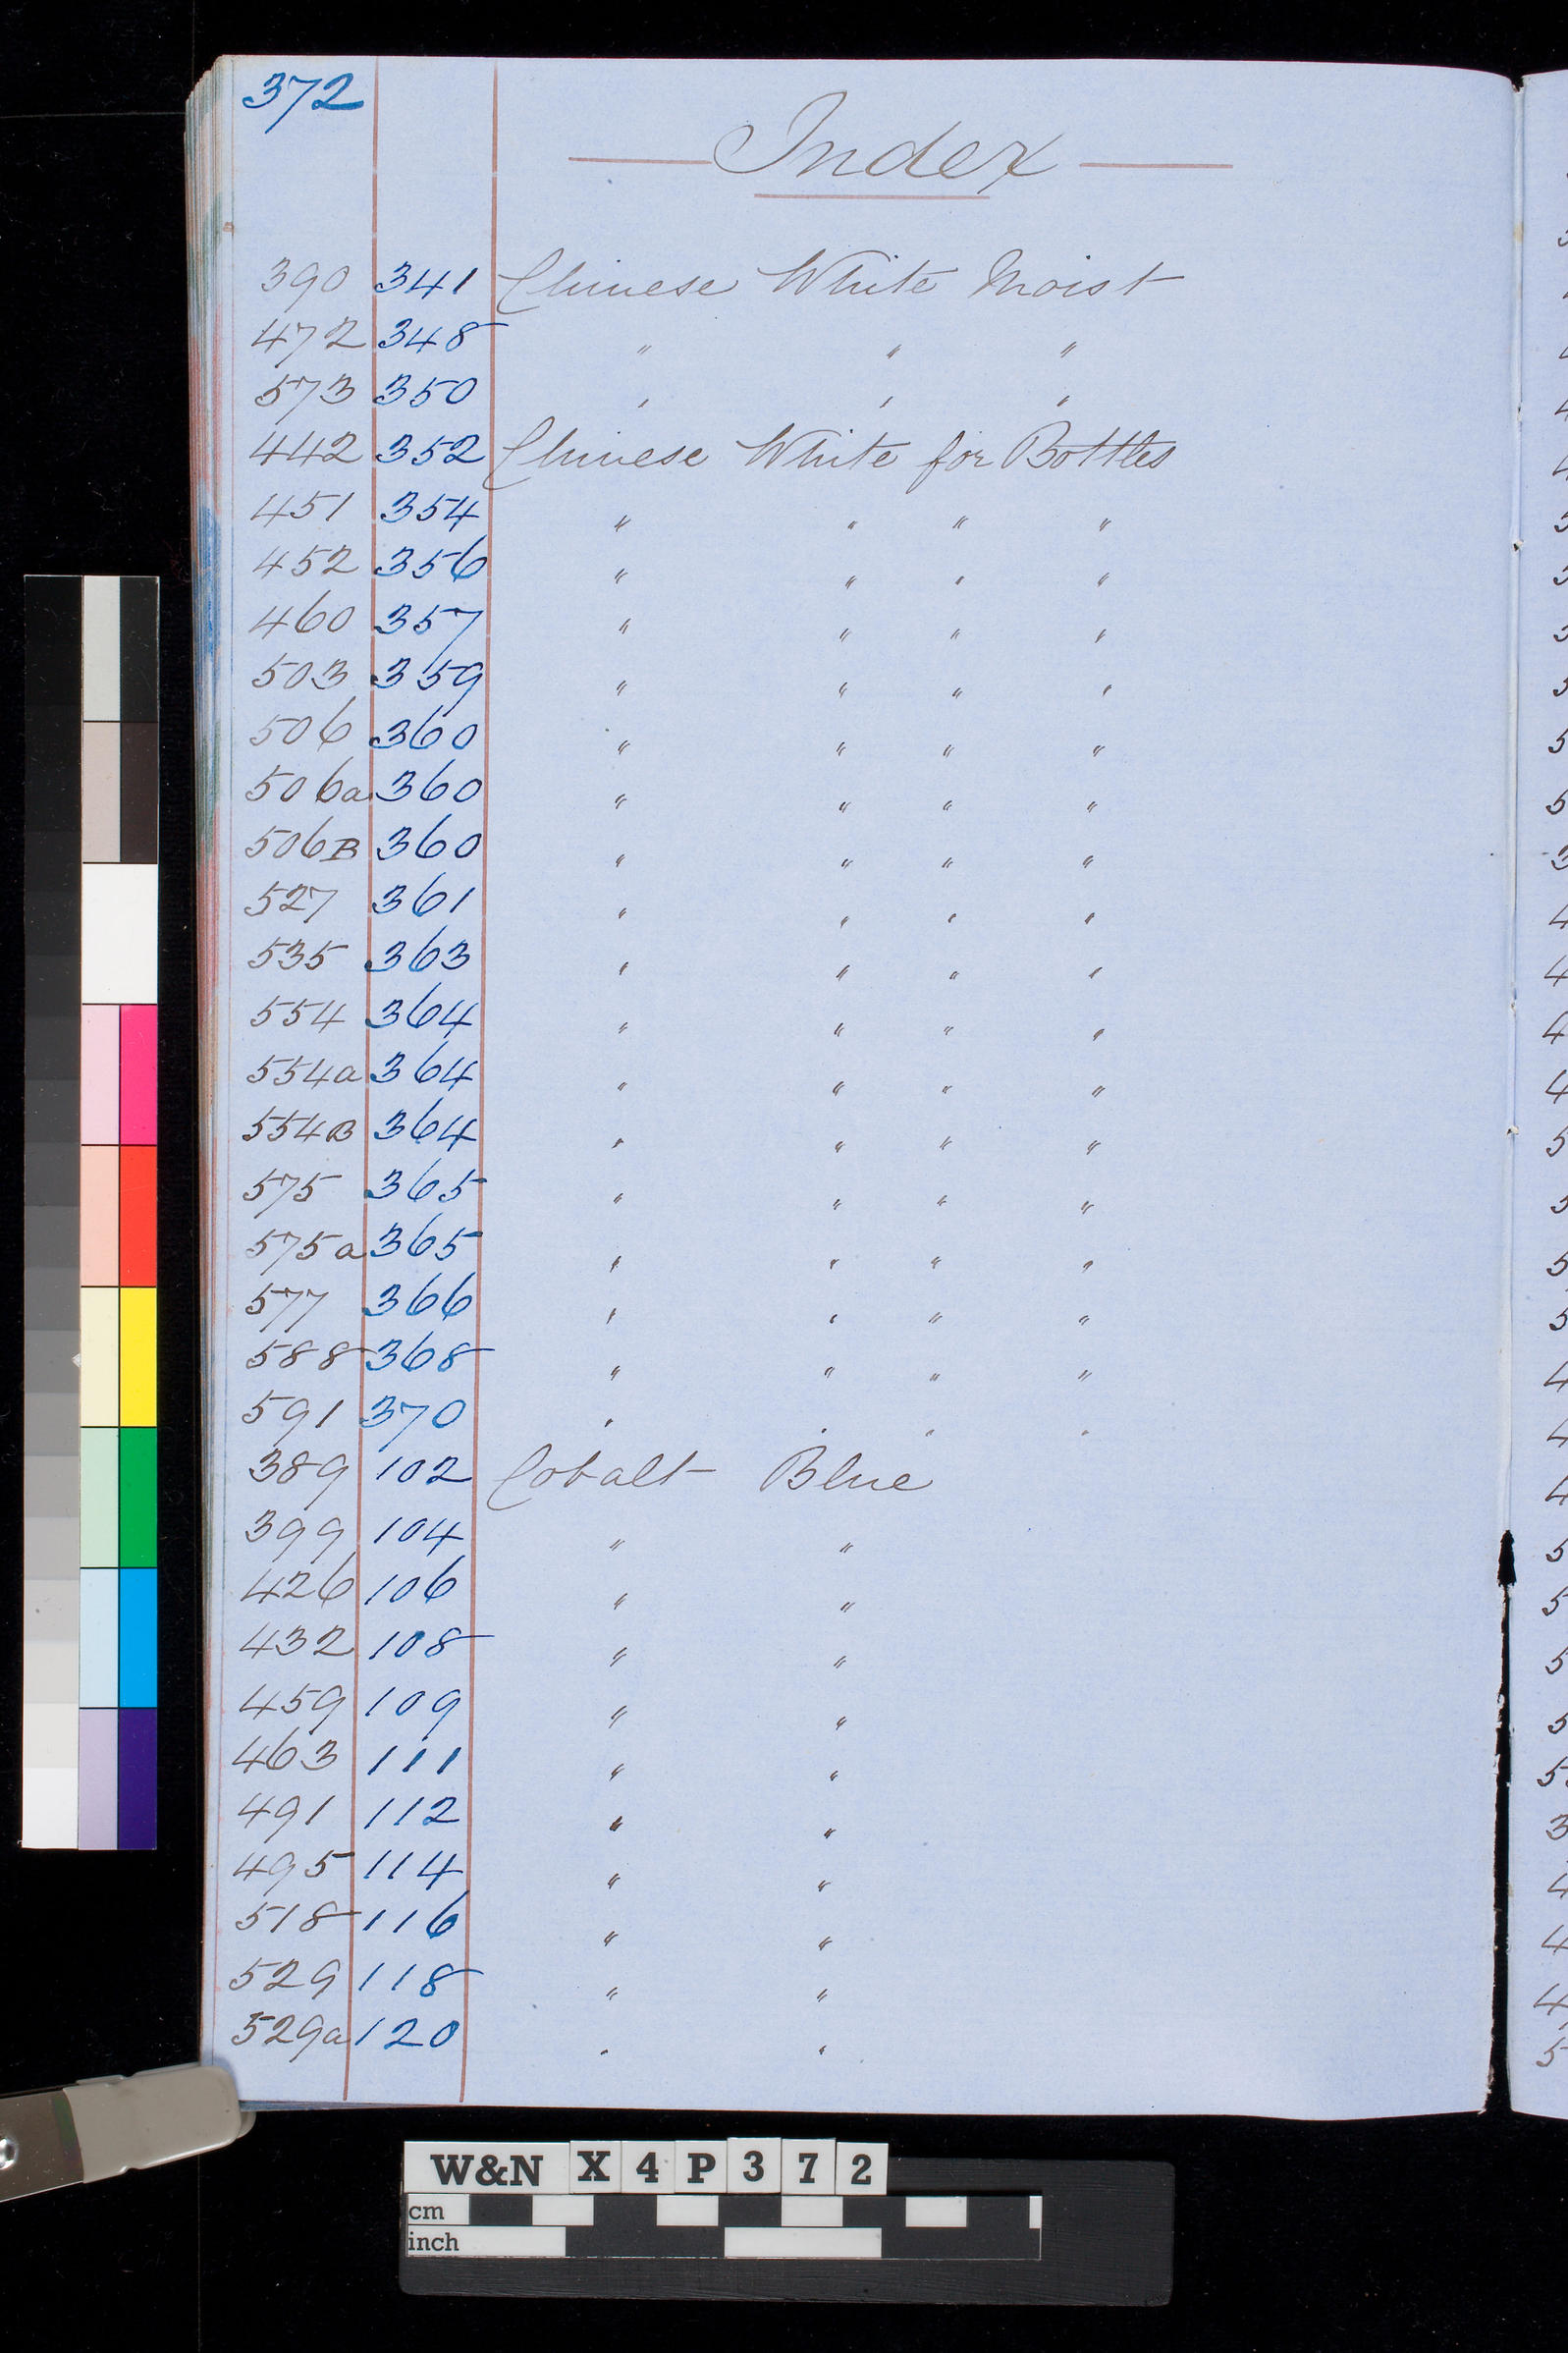 372
Index
390 341 Chinese White Moist
472 348 " " "
573 350 " " "
442 352 Chinese White for Bottles
451 354 " " " "
452 356 " " " "
460 357 " " " "
503 359 " " " "
506 360 " " " "
506a 360 " " " "
506B 360 " " " "
527 361 " " " "
535 363 " " " "
554 364 " " " "
554a 364 " " " "
554B 364 " " " "
575 365 " " " "
575a 365 " " " "
577 366 " " " "
588 368 " " " "
591 370 " " " "
389 102 Cobalt Blue
399 104 " "
426 106 " "
432 108 " "
459 109 " "
463 111 " "
491 112 " "
495 114 " "
518 116 " "
529 118 " "
529a 120 " "
W&N X4P372
cm
inch